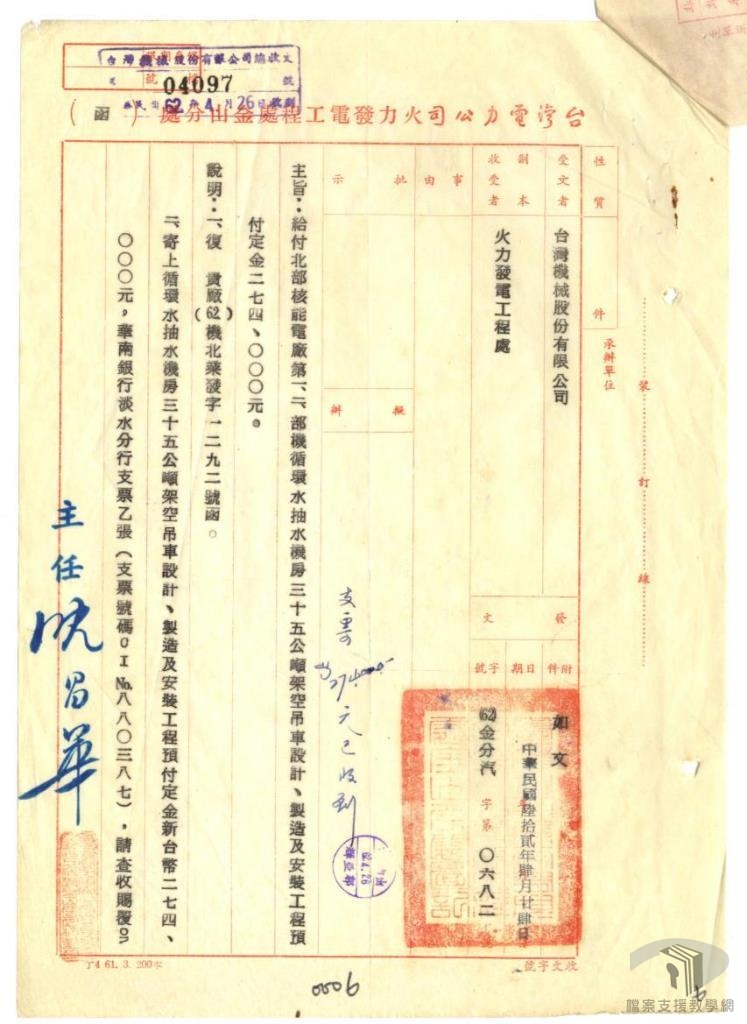 台灣機械股份有限公司總收文
04097
號
62年4月26日收到
台灣電力公司火力發電工程處金山分處（函）
性質
件
承辦單位
受文者
台灣機械股份有限公司
副本收受者
火力發電工程處
事由
批示
擬辦
發文
附件
如文
日期
中華民國陸拾貳年肆月廿肆日
字號
(62)金分汽字第〇六八二
主旨：給付北部核能電廠第一、二、部機循環水抽水機房三十五公噸架空吊車設計、製造及安裝工程預
付定金二七四、〇〇〇元。
說明：一、復　貴廠(62)機北業發字一二九二號函。
二、寄上循環水抽水機房三十五公噸架空吊車設計、製造及安裝工程預付定金新台幣二七四、
〇〇〇元，華南銀行淡水分行支票乙張（支票號碼UI No.八八〇三八七），請查收賜覆
主任
支票
元已收到
62.4.26
裝
訂
線
收文字號
T4 61. 3. 200本
0006
檔案支援教學網